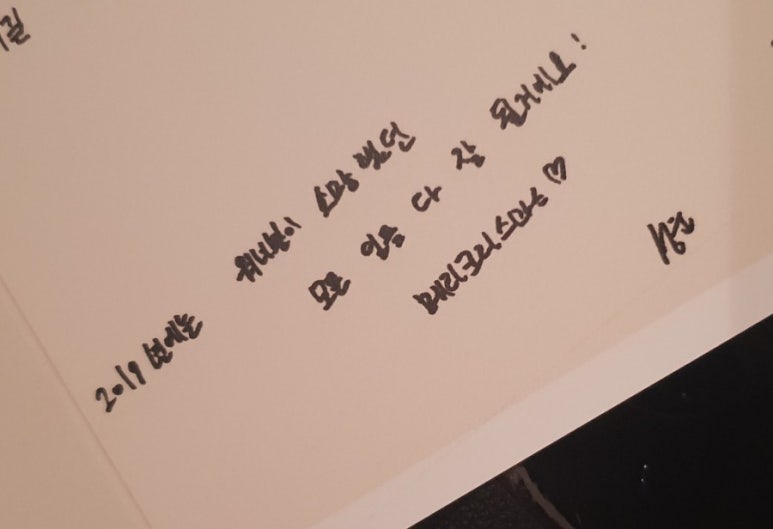 2019년에는 위너분이 소망했던
모든 일들 다 잘 될거에요!
메리크리스마스♡